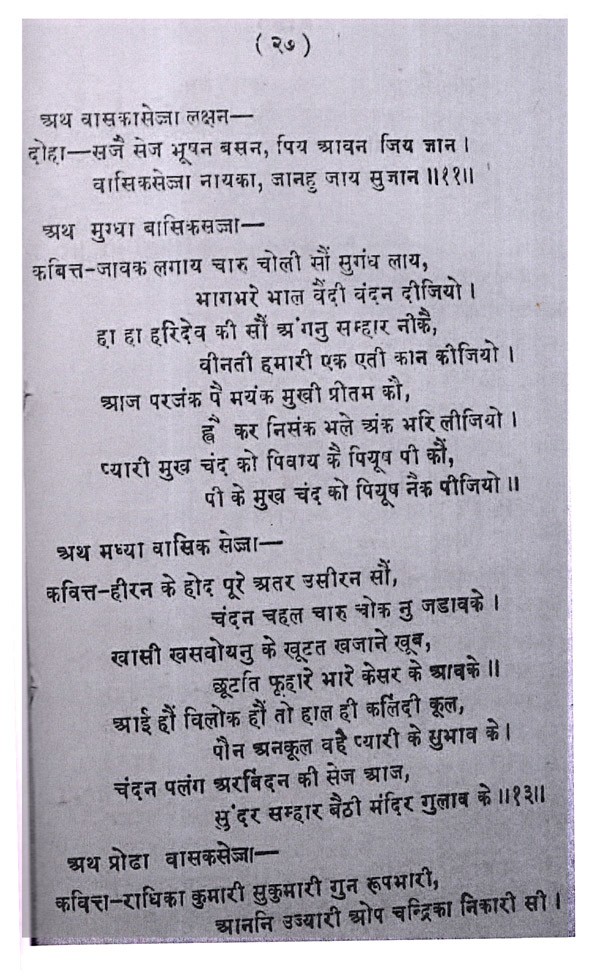 ( २७ )
अथ वासकासेज्जा लक्षन—
दोहा—सजै सेज भूषन बसन, पिय आवन जिय जान ।
वासिकसेज्जा नायका, जानहु जाय सुजान ॥११॥
अथ मुग्धा बासिकसज्जा—
कबित्त-जावक लगाय चारु चोली सौं सुगंध लाय,
भागभरे भाल वैंदी वंदन दीजियो ।
हा हा हरिदेव की सौं अंगनु सम्हार नीकै,
वीनती हमारी एक एती कान कीजियो ।
आज परजंक पै मयंक मुखी प्रीतम कौ,
ह्वै कर निसंक भले अंक भरि लीजियो ।
प्यारी मुख चंद को पिवाय कै पियूष पी कौं,
पी के मुख चंद को पियूष नैक पीजियो ॥
अथ मध्या वासिक सेज्जा—
कवित्त-हीरन के होद पूरे अतर उसीरन सौं,
चंदन चहल चारु चोक नु जडावके ।
खासी खसवोयनु के खूटत खजाने खूब,
छूटति फूहारे भारे केसर के आवके ॥
आई हौं विलोक हौं तो हाल ही कलिंदी कूल,
पौन अनकूल वहै प्यारी के सुभाव के ।
चंदन पलंग अरबिंदन की सेज आज,
सुंदर सम्हार बैठी मंदिर गुलाव के ॥१३॥
अथ प्रोढा वासकसेज्जा—
कवित्त-राधिका कुमारी सुकुमारी गुन रूपभारी,
आननि उज्यारी ओप चन्द्रिका निकारी सी ।